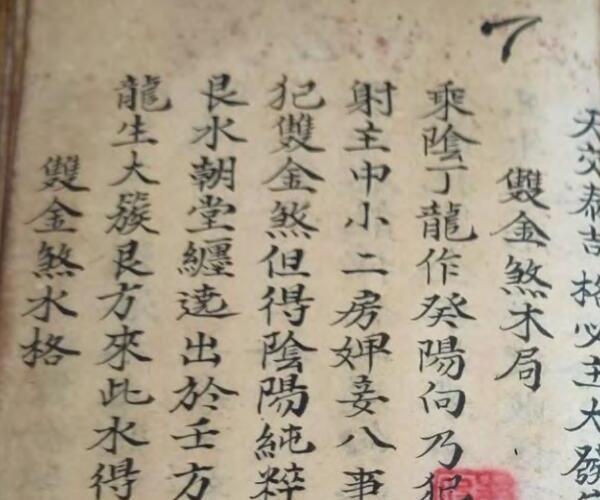 7
天 泰吉格必主大發
雙金煞木局
乘陰丁龍作癸陽向乃犯
射主中小二房婢妾八事
犯雙金煞但得陰陽純粹
艮水朝堂纏遶出於壬方
龍生大簇艮方來此水得
雙金煞水格